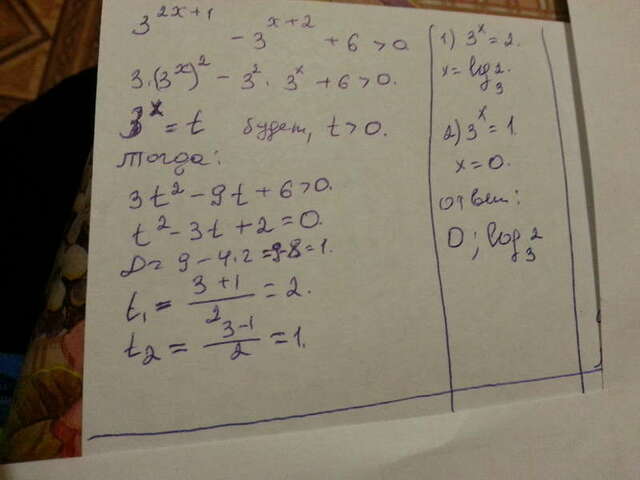 3^{2x+1} - 3^{x+2} + 6 > 0
3·(3^x)^2 - 3^2 · 3^x + 6 > 0.
3^x = t будет, t > 0.
Тогда:
3t^2 - 9t + 6 > 0.
t^2 - 3t + 2 = 0.
D = 9 - 4·2 = 9-8 = 1.
t_1 = \frac{3+1}{2} = 2.
t_2 = \frac{3-1}{2} = 1.
1) 3^x = 2.
x = log_3 2.
2) 3^x = 1.
x = 0.
ответ:
0; log_3 2